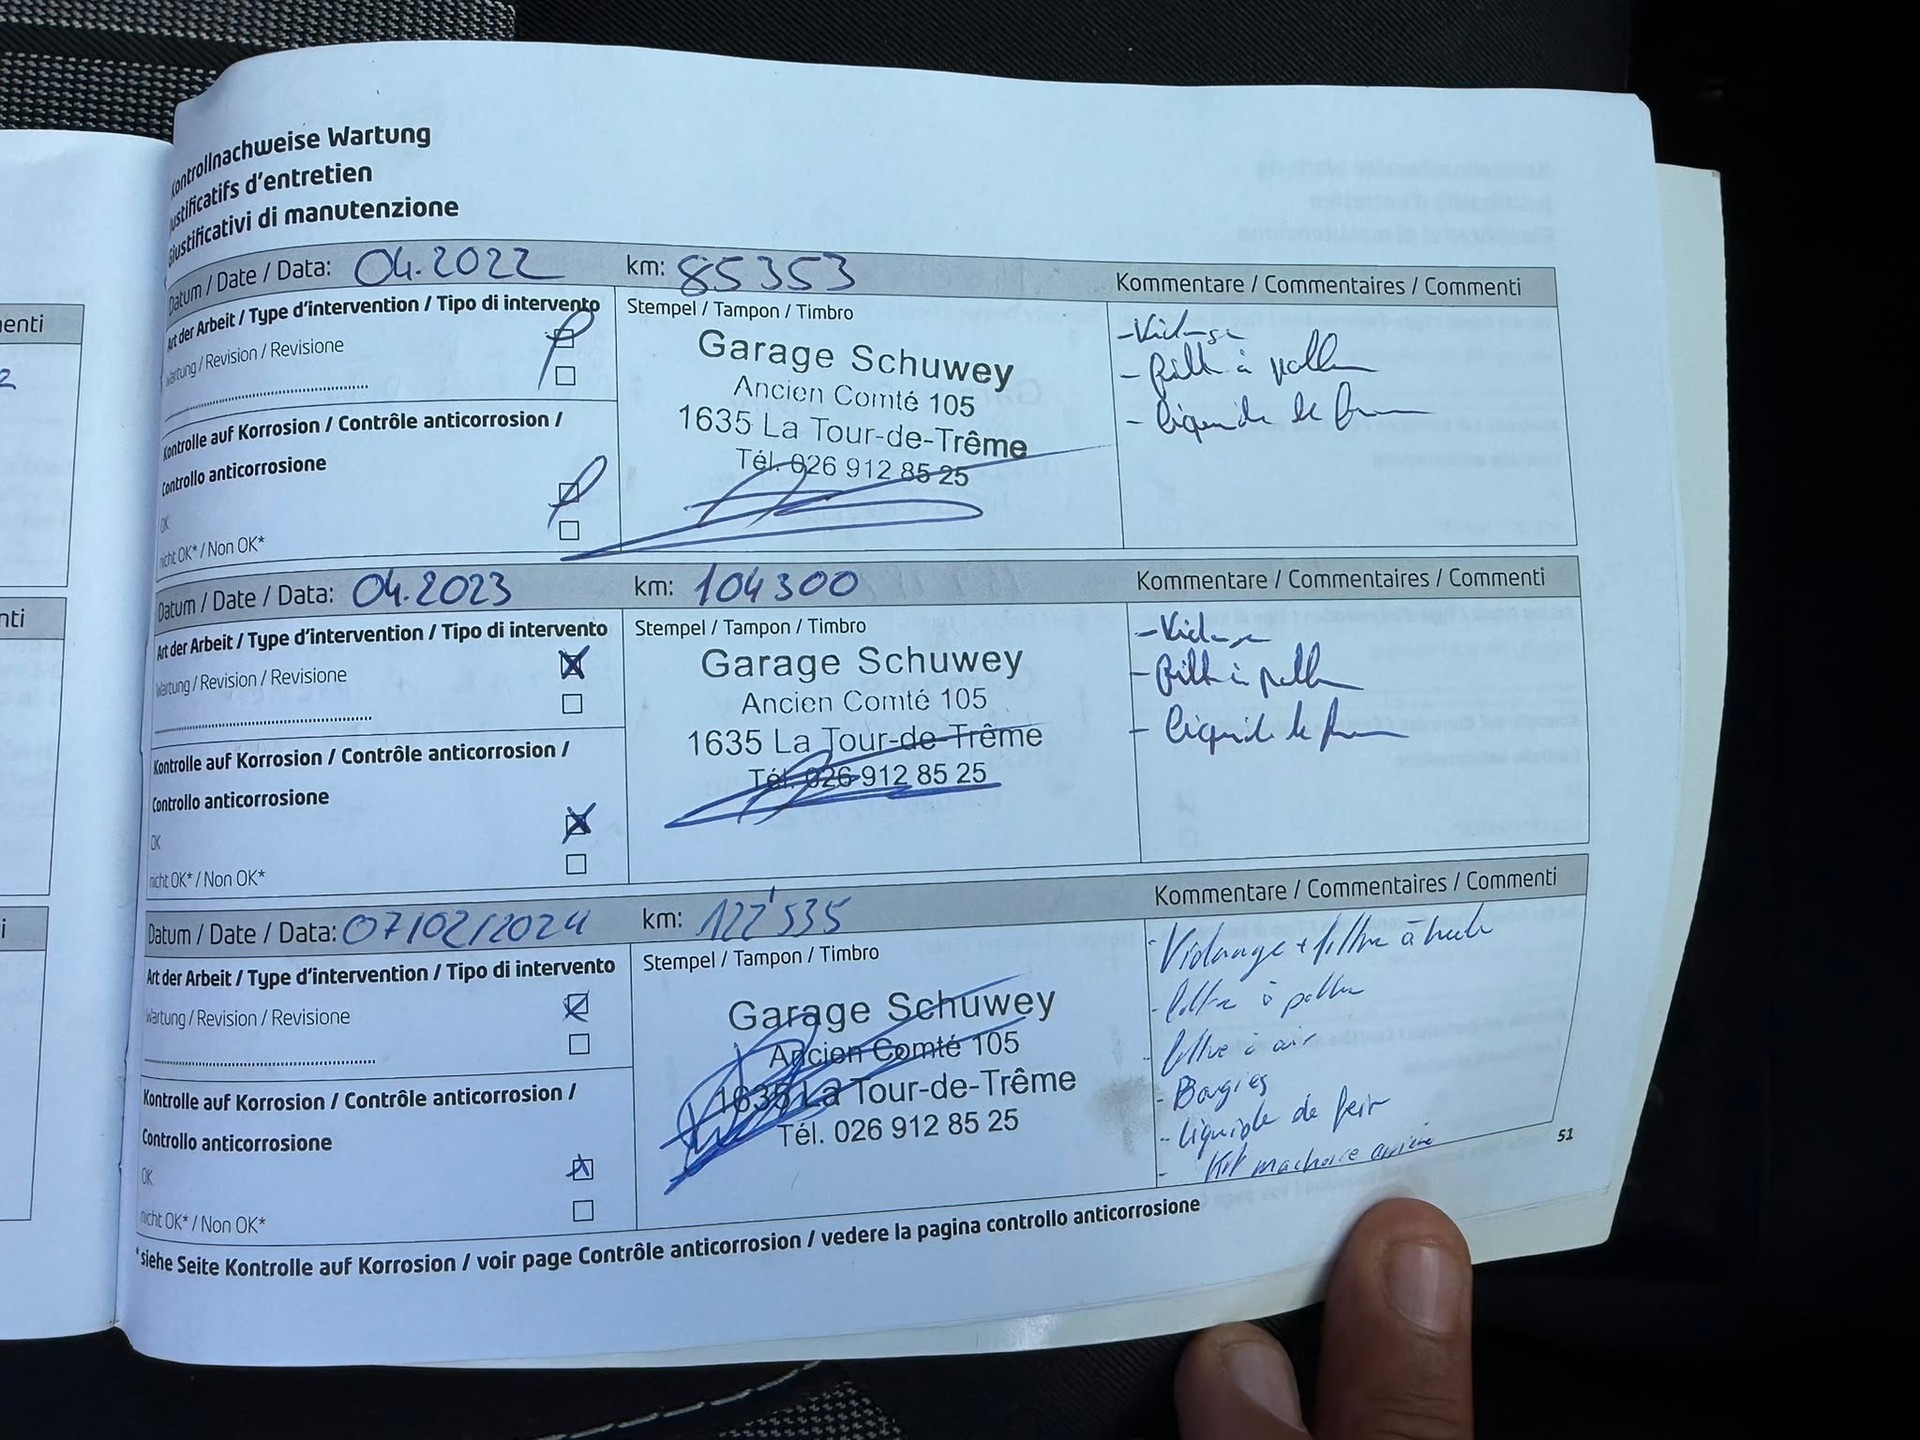 Kontrollnachweise Wartung
Justificatifs d'entretien
Giustificativi di manutenzione
Datum / Date / Data: 04.2022 km: 85353 Kommentare / Commentaires / Commenti
Art der Arbeit / Type d'intervention / Tipo di intervento
Wartung / Revision / Revisione
Kontrolle auf Korrosion / Contrôle anticorrosion /
Controllo anticorrosione
OK
nicht OK* / Non OK*
Stempel / Tampon / Timbro
Garage Schuwey
Ancien Comté 105
1635 La Tour-de-Trême
Tél. 026 912 85 25
- Vidange
- Filtre à pollen
- liquide de frein
Datum / Date / Data: 04.2023 km: 104300 Kommentare / Commentaires / Commenti
Art der Arbeit / Type d'intervention / Tipo di intervento
Wartung / Revision / Revisione
Kontrolle auf Korrosion / Contrôle anticorrosion /
Controllo anticorrosione
OK
nicht OK* / Non OK*
Stempel / Tampon / Timbro
Garage Schuwey
Ancien Comté 105
1635 La Tour-de-Trême
Tél. 026 912 85 25
- Vidange
- Filtre à pollen
- liquide de frein
Datum / Date / Data: 07/02/2024 km: 122'535 Kommentare / Commentaires / Commenti
Art der Arbeit / Type d'intervention / Tipo di intervento
Wartung / Revision / Revisione
Kontrolle auf Korrosion / Contrôle anticorrosion /
Controllo anticorrosione
OK
nicht OK* / Non OK*
Stempel / Tampon / Timbro
Garage Schuwey
Ancien Comté 105
1635 La Tour-de-Trême
Tél. 026 912 85 25
- Vidange + filtre à huile
- filtre à pollen
- filtre à air
- Bougies
- liquide de frein
- Kit machoire arrière
51
*siehe Seite Kontrolle auf Korrosion / voir page Contrôle anticorrosion / vedere la pagina controllo anticorrosione